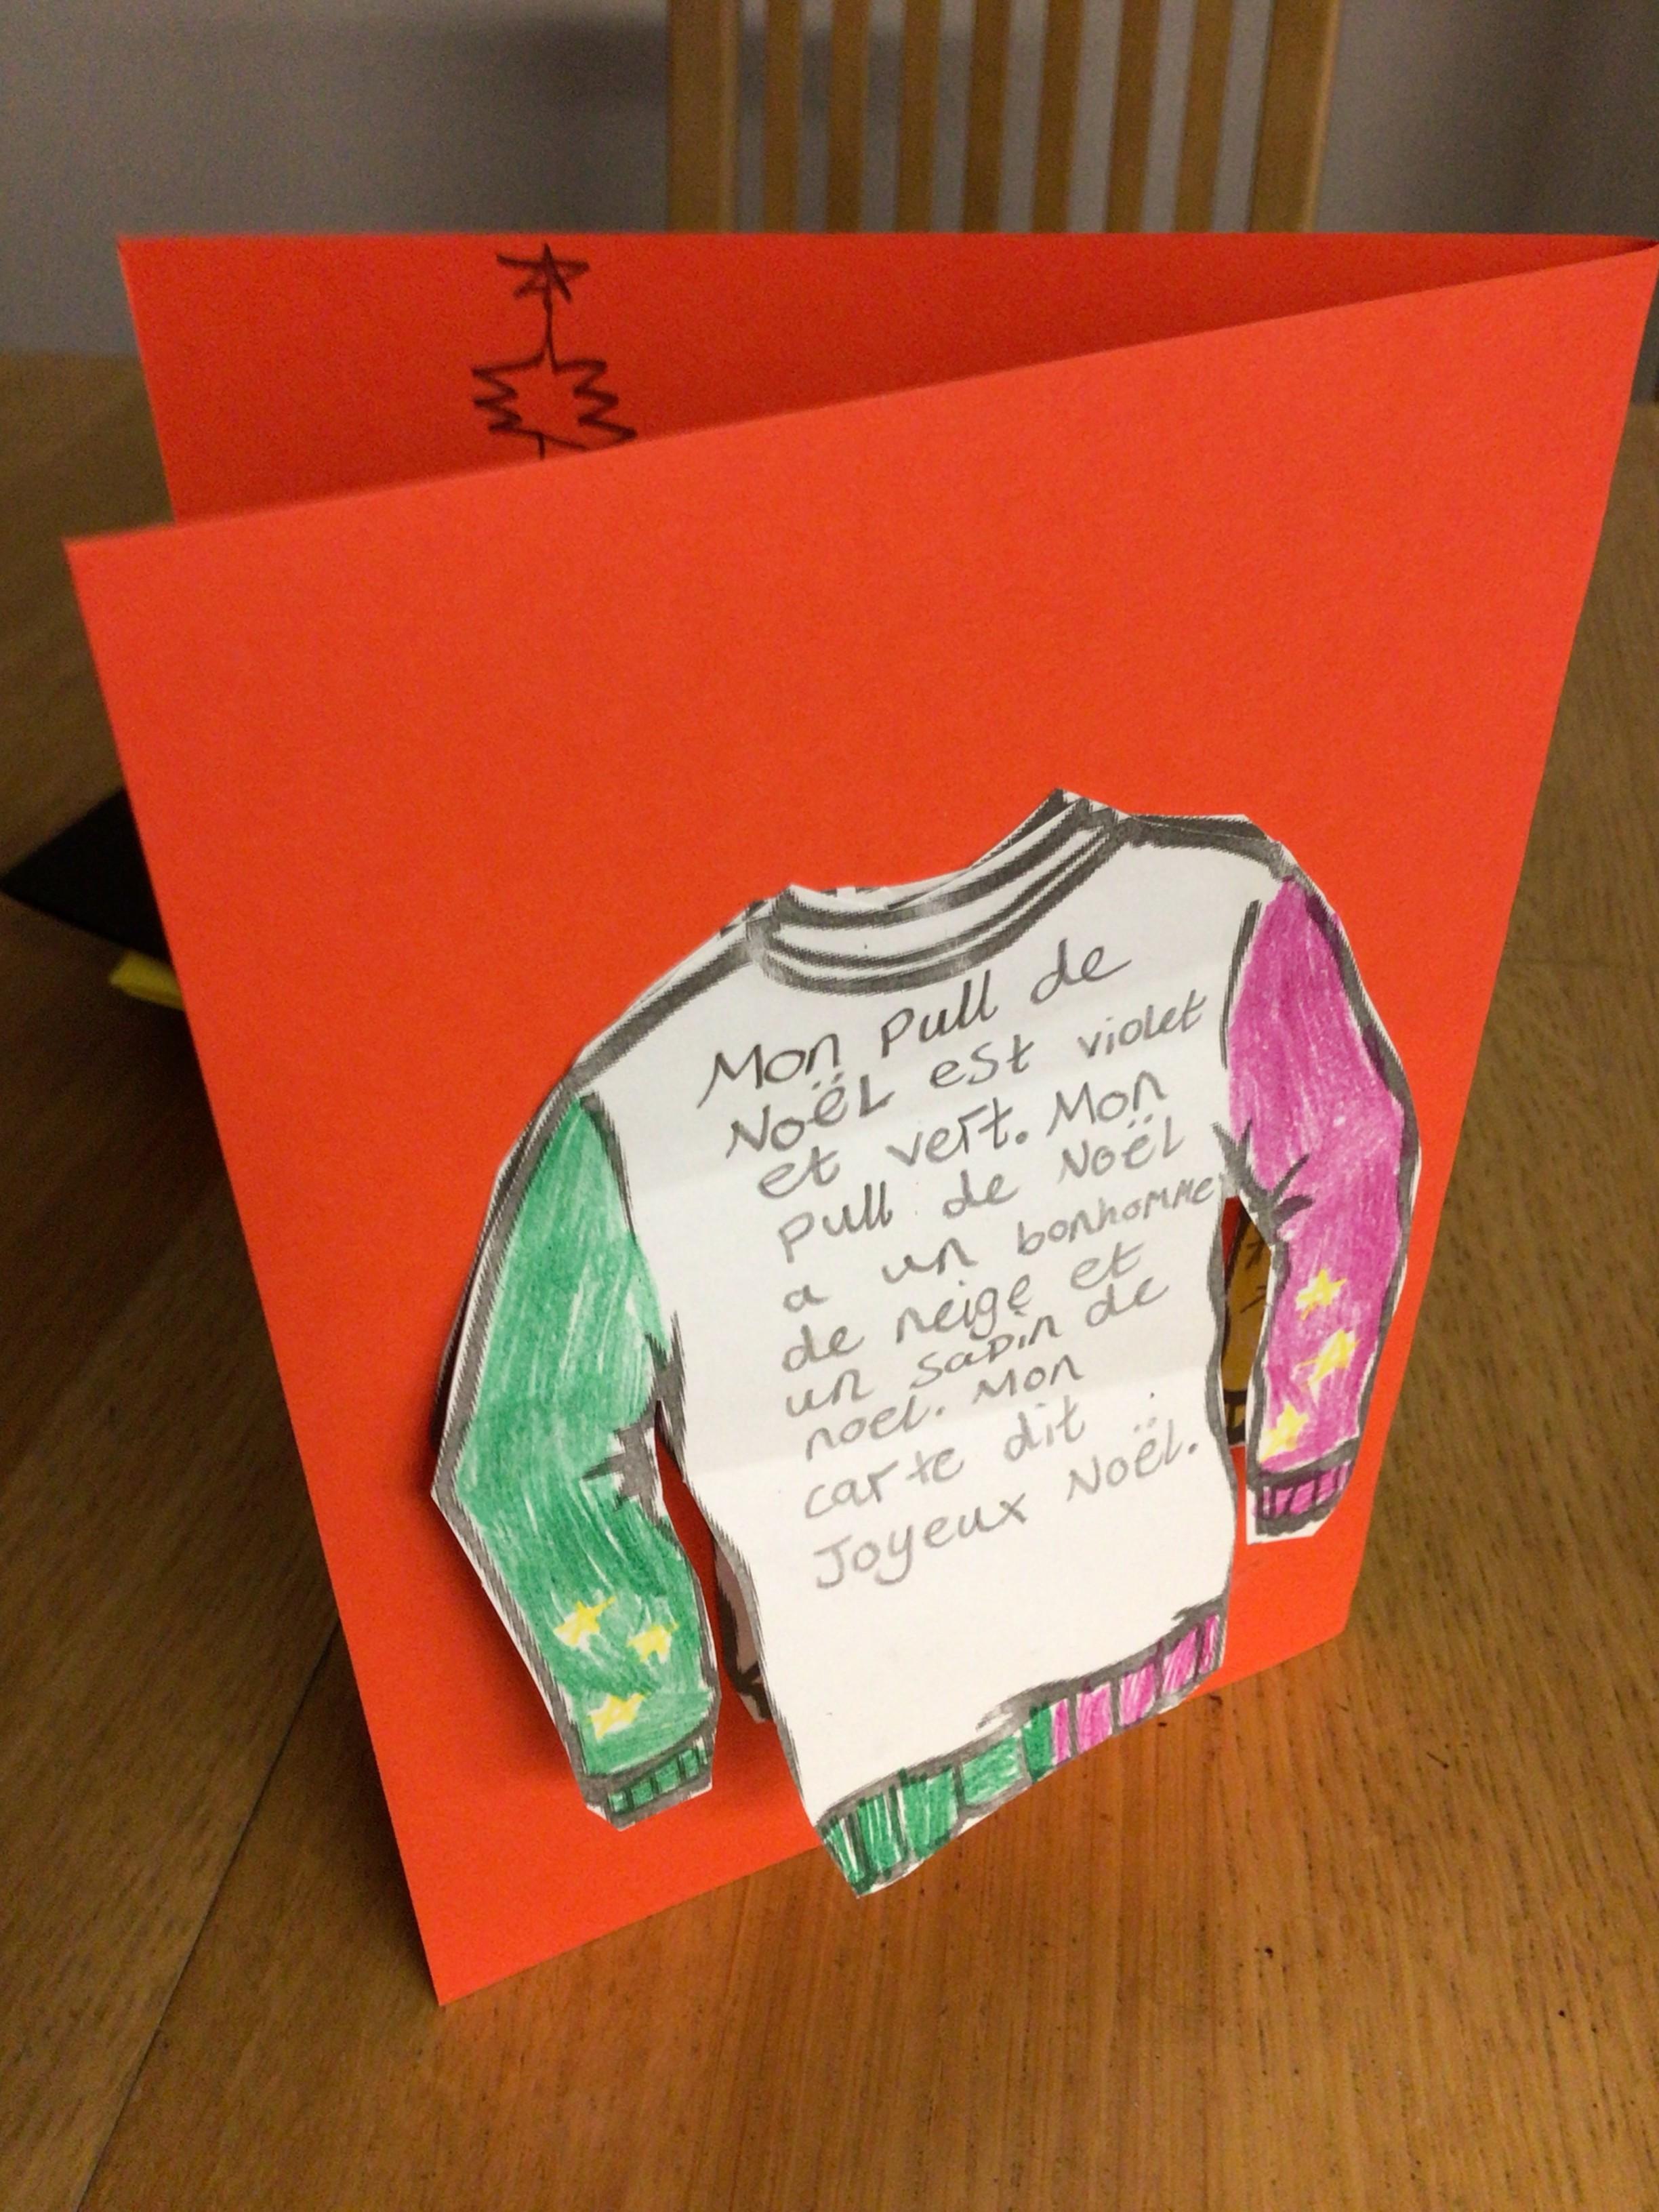 Mon pull de
Noël est violet
et vert. Mon
pull de Noël
a un bonhomme
de neige et
un sapin de
noel. Mon
carte dit
Joyeux Noël.